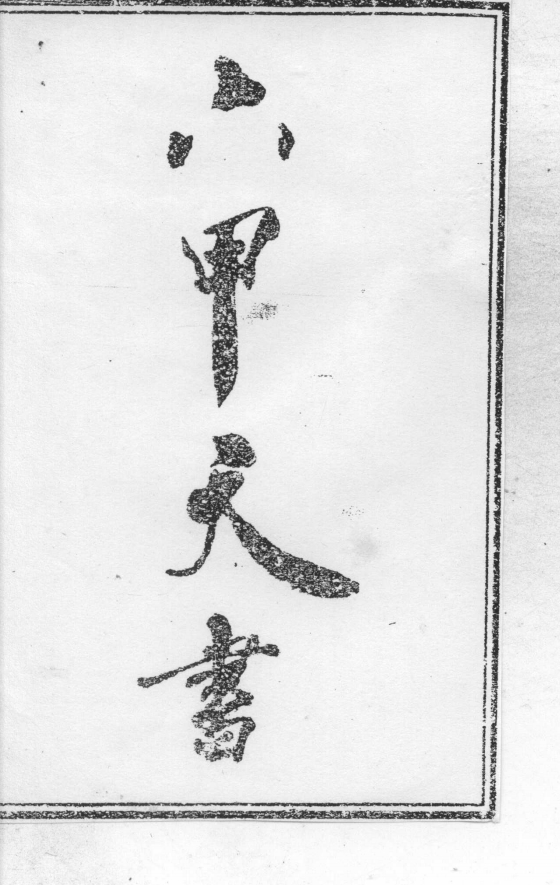 六甲天書